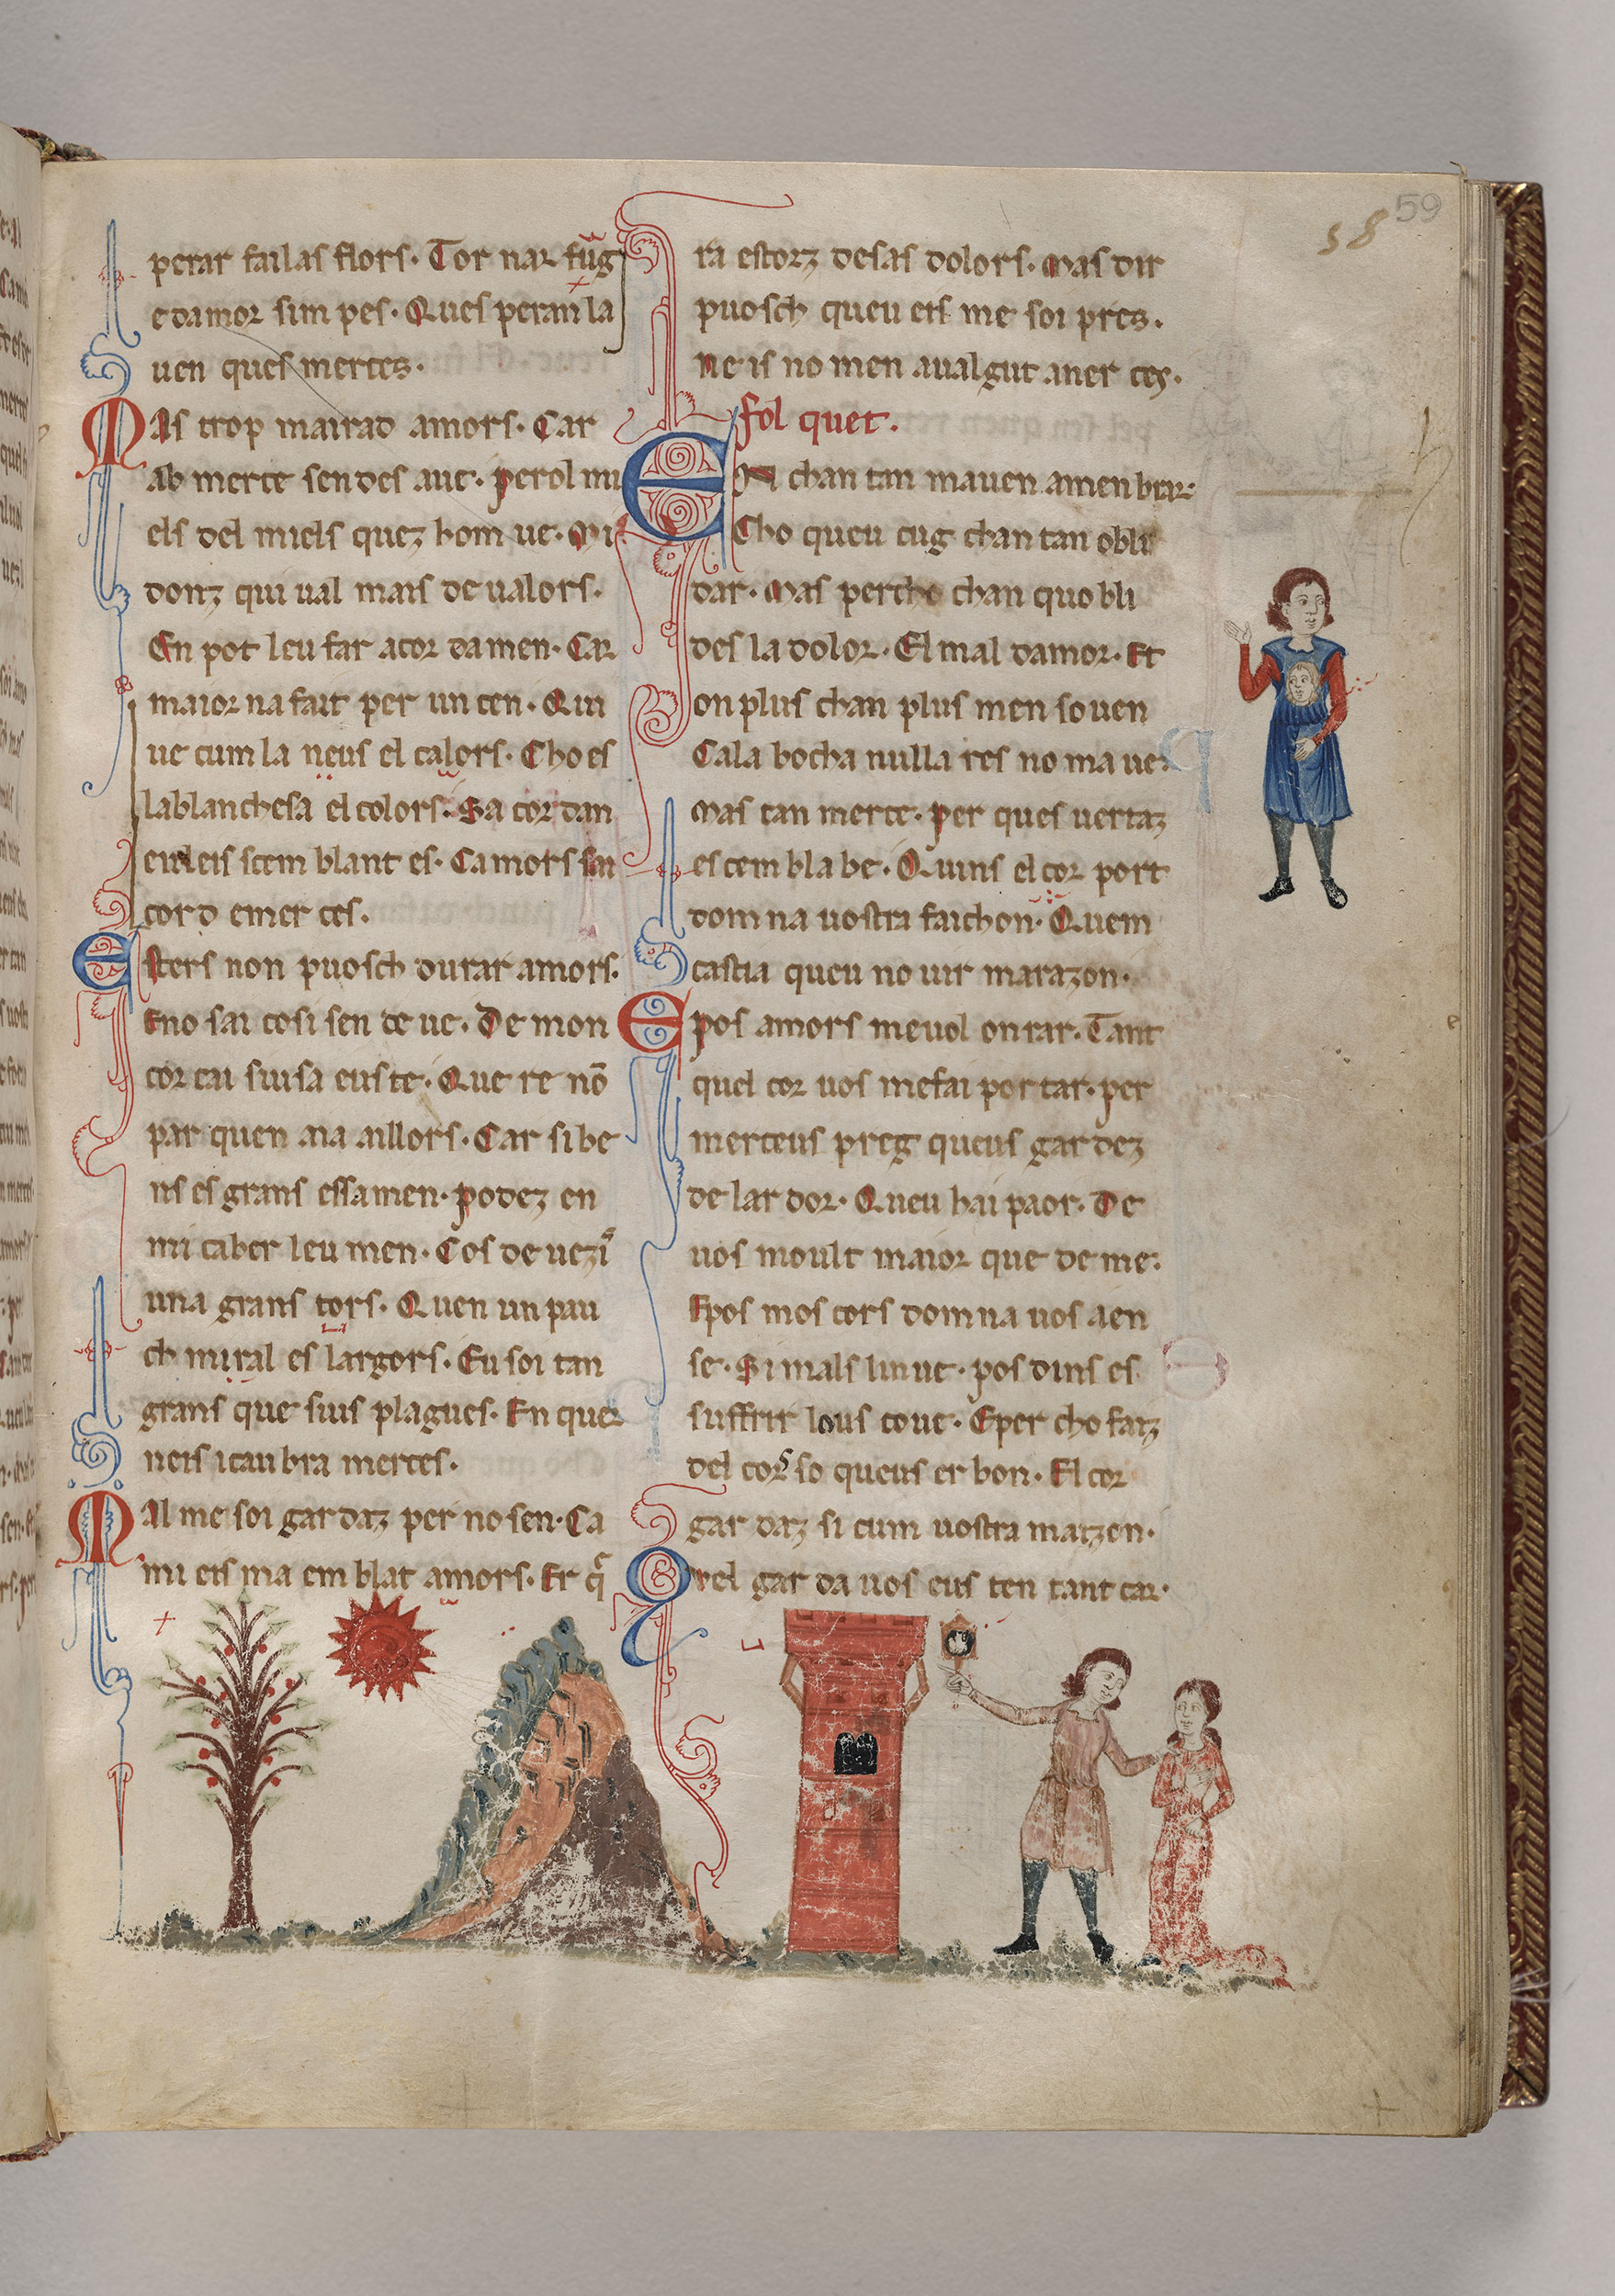 58 59
perar failas flors. Tor nar fug
edamor sim pes. Ques peran la
uen ques merces.
Mas trop mairad amors. Car
ab merce sen des aue. perol mi
els del miels quez hom ue. Mi
donz qui ual mais de ualors.
En pot leu far acor damen. Car
maior na fait per un cen. Qui
ue cum la neus el calors. Cho es
lablanchesa el colors. Sa cor dan
eidleis scem blant es. Camors sin
cord emer ces.
Esters non puosch durar amors.
Eno sai cosi sen de ue. De mon
cor cai siusa euste. Que re nō
par quen aia aillors. Car si be
us es grans essamen. podez en
mi caber leu men. Cos de uezī
una grans tors. Quen un pau
ch miral es largors. Eu soi tan
grans que sius plagues. En quer
neis icaubra merces.
Mal me soi gardaz per no sen. Ca
mi eis ma em blat amors. Er q̄
ra estorz desas dolors. Mas dir
puosch queu eis me soi pres.
ne is no men aualgut aner ces.
fol quet.
En chan tan mauen amen brar.
Cho queu cug chan tan obli
dar. Mas percho chan quo bli
des la dolor. El mal damor. Et
on plus chan plus men souen
Cala bocha nulla res no ma ue.
Mas tan merce. per ques uertaz
escem bla be. Quins el cor port
dom na uostra faichon. Quem
castia queu no uir marazon.
E pos amors meuol onrar. Tant
quel cor uos mefai por tar. per
merceus preg queus gar dez
de lar dor. Queu hai paor. De
uos moult maior que de me.
Epos mos cors dom na uos a en
se. Si mals linue. pos dins es
suffrir lous coue. Eper cho faz
del cors so queus er bon. El cor
gar daz si cum uostra maizon.
Qel gar da uos eus ten tant car.